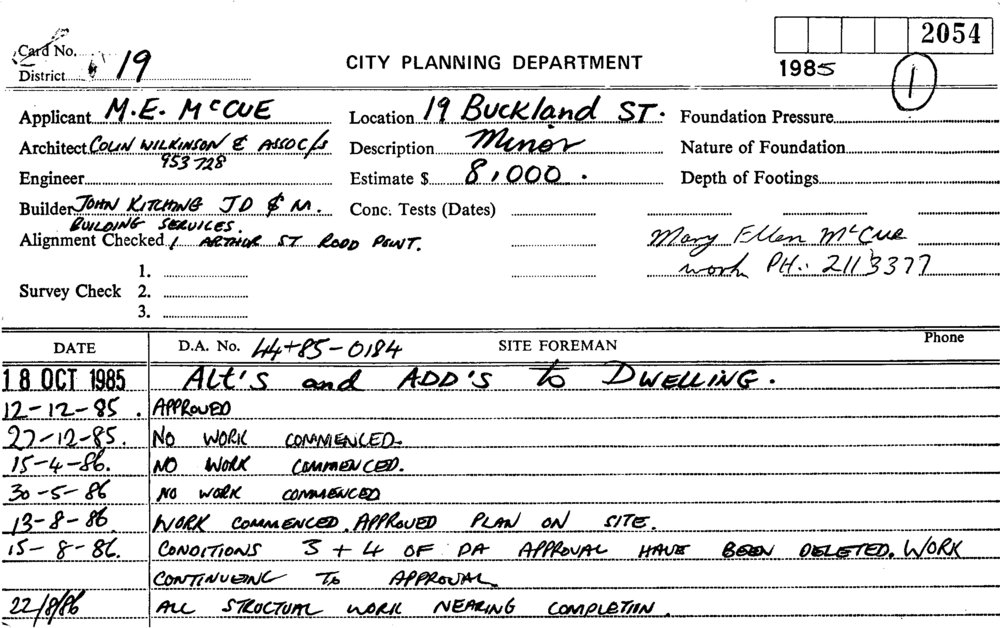 2054
Card No.
District 19
CITY PLANNING DEPARTMENT
1985
1
Applicant M.E. McCUE
Location 19 BUCKLAND ST.
Foundation Pressure
Architect COLIN WILKINSON & ASSOC/s
953 728
Description Minor
Nature of Foundation
Engineer
Estimate $ 8,000.
Depth of Footings
Builder JOHN KITCHING JD & M.
BUILDING SERVICES.
Conc. Tests (Dates)
Alignment Checked 1 ARTHUR ST RODD POINT.
Mary Ellen McCue
work PH.: 211 3377
1.
Survey Check 2.
3.
DATE D.A. No. 44+85-0184 SITE FOREMAN Phone
18 OCT 1985 ALT'S and ADD'S to DWELLING.
12-12-85. APPROVED
27-12-85. NO WORK COMMENCED.
15-4-86. NO WORK COMMENCED.
30-5-86 NO WORK COMMENCED
13-8-86. WORK COMMENCED. APPROVED PLAN ON SITE.
15-8-86. CONDITIONS 3 + 4 OF DA APPROVAL HAVE BEEN DELETED. WORK
CONTINUEING TO APPROVAL.
22/8/86 ALL STRUCTUAL WORK NEARING COMPLETION.